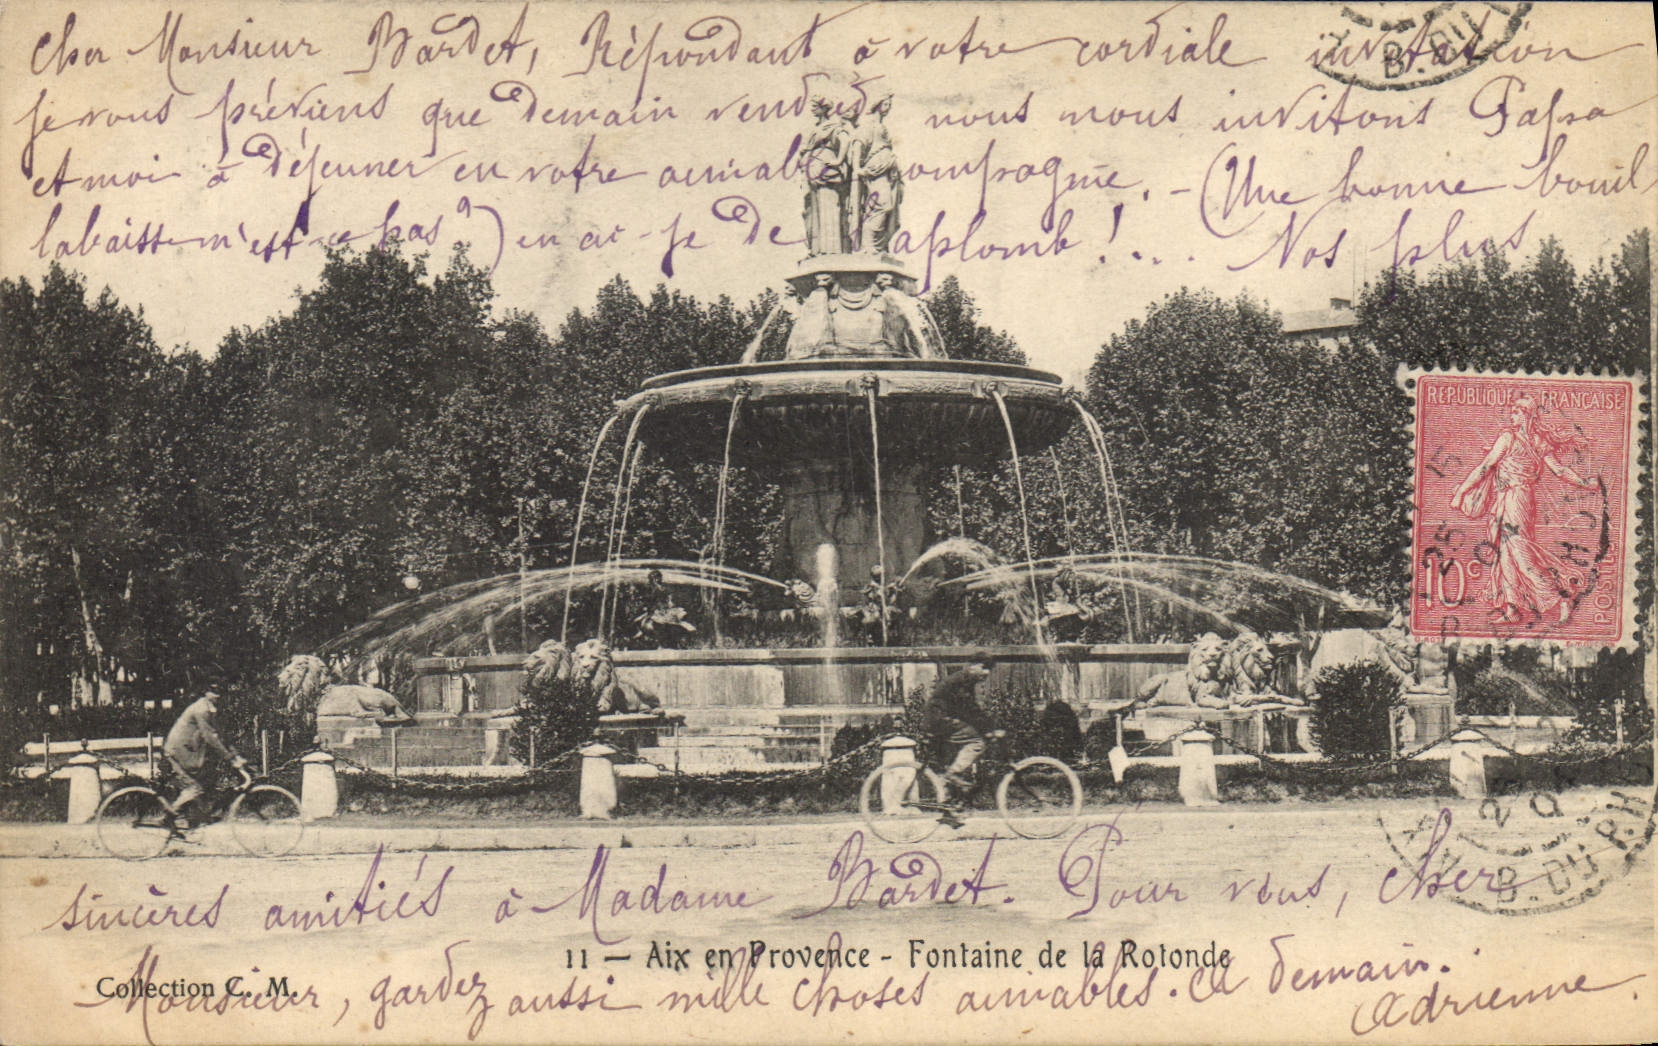 Cher Monsieur Bardet, Répondant à votre cordiale invitation
je vous préviens que demain vendredi nous nous invitons Papa
et moi à déjeuner en votre aimable compagnie. - (Une bonne bouil
labaisse n'est-ce pas?) en ai-je de l'aplomb!... Nos plus
RÉPUBLIQUE FRANÇAISE
10c
POSTES
B. DU RHÔNE
sincères amitiés à Madame Bardet. Pour vous, cher
11 — Aix en Provence - Fontaine de la Rotonde
Collection C. M.
Monsieur, gardez aussi mille choses aimables. A demain.
Adrienne.